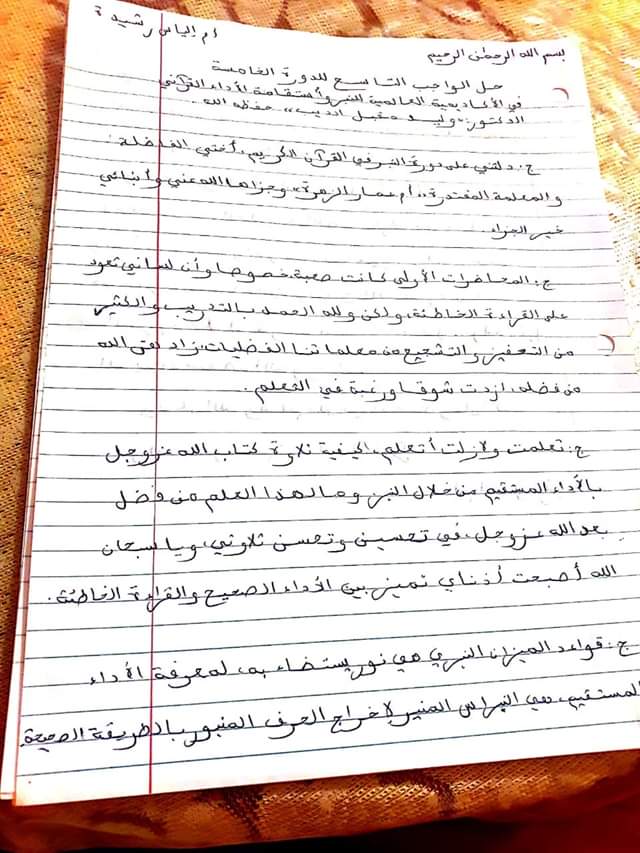 أم إلياس رشيدة
بسم الله الرحمٰن الرحيم
حل الواجب التاسع للدورة الخامسة
في الأكاديمية العالمية للنبر وأستقامة الأداء القرآني
الدكتور: "وليد مقبل الديب" حفظه الله.
ج: دلتني على دورة النبر في القرآن الكريم، أختي الفاضلة
والمعلمة المقتدرة "أم عمار الزهرة" وجزاها الله عني وأبنائي
خير الجزاء.
ج: المحاضرات الأولى كانت صعبة خصوصا وأن لساني تعود
على القراءة الخاطئة، ولكن ولله الحمد بالتدريب والكثير
من التحفيز والتشجيع من معلماتنا الفضليات زادهن الله
من فضله، ازدت شوقا ورغبة في التعلم.
ج: تعلمت ولازلت أتعلم، كيفية تلاوة كتاب الله عزوجل
بالأداء المستقيم من خلال النبر وما لهذا العلم من فضل
بعد الله عزوجل، في تحسين وتحسن تلاوتي، ويا سبحان
الله أصبحت أذناي تميز بين الأداء الصحيح والقراءة الخاطئة.
ج: قواعد الميزان النبري هي نور يستضاء به، لمعرفة الأداء
المستقيم، هي النبراس المنير لإخراج الحرف المنبور بالطريقة الصحيحة